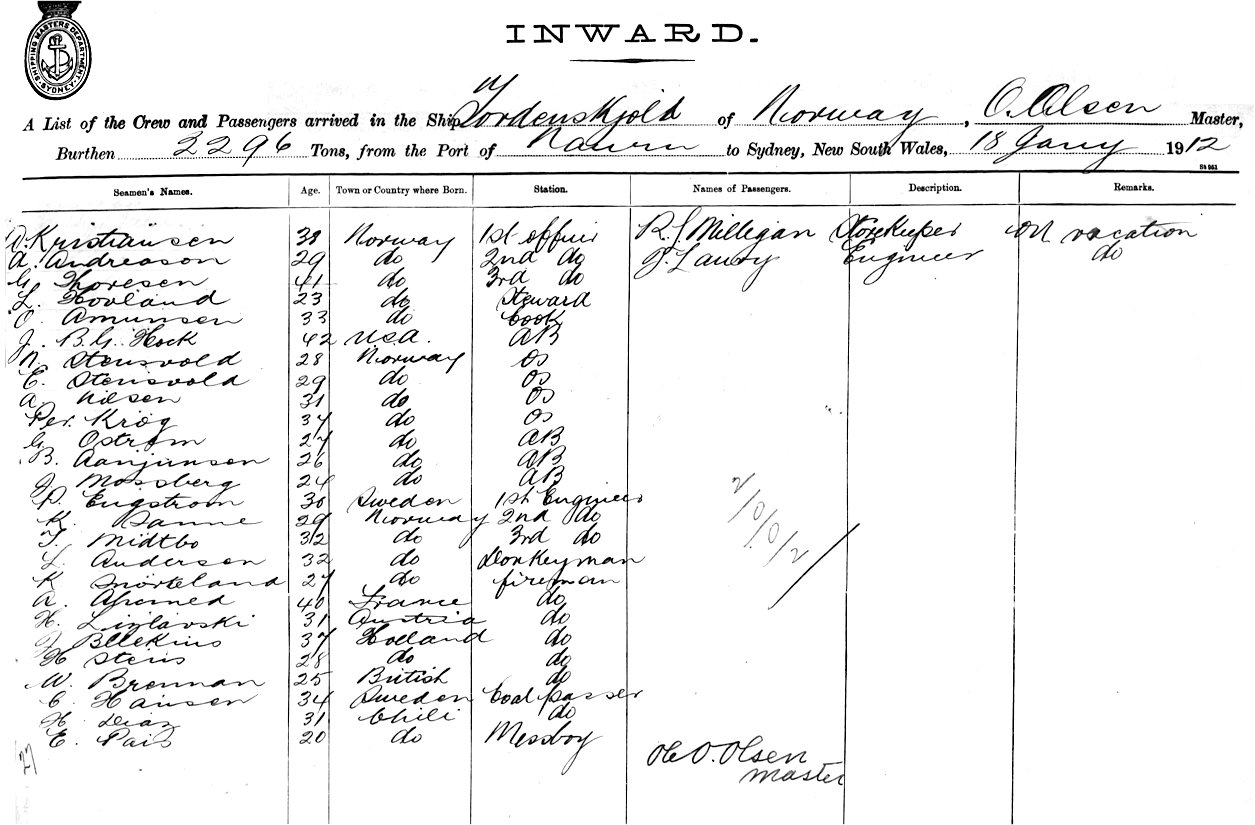 SHIPPING MASTERS DEPARTMENT SYDNEY
INWARD.
A List of the Crew and Passengers arrived in the Ship Tordenskjold of Norway, O. Olsen Master,
Burthen 2296 Tons, from the Port of Nauru to Sydney, New South Wales, 18 Jany 1912
Seamen's Names. Age. Town or Country where Born. Station. Names of Passengers. Description. Remarks.
Kristiansen 38 Norway 1st officer R. J. Milligan Storekeeper on vacation
A. Andreason 29 do 2nd do Engineer do
G. Thoresen 41 do 3rd do
L. Hovland 23 do Steward
O. Amunsen 33 do Cook
J. B. G. Hock 42 U.S.A. AB
N. Stensvold 28 Norway OS
E. Stensvold 29 do OS
A. Nilsen 31 do OS
Per Krog 34 do OS
G. Ostrom 27 do AB
B. Aanjunsen 26 do AB
J. Mossberg 24 do AB
P. Engstrom 30 Sweden 1st Engineer
K. Sanne 29 Norway 2nd do
T. Midtbo 32 do 3rd do
L. Andersen 32 do Donkeyman
K Snorteland 27 do fireman
A. Ahomed 40 France do
H. 31 Austria do
37 Holland do
H Stens 28 do do
W. Brennan 25 British do
C. Hansen 34 Sweden Coal passer
H Diaz 31 Chili do
E. Pais 20 do Messboy
Ole O. Olsen
master
27